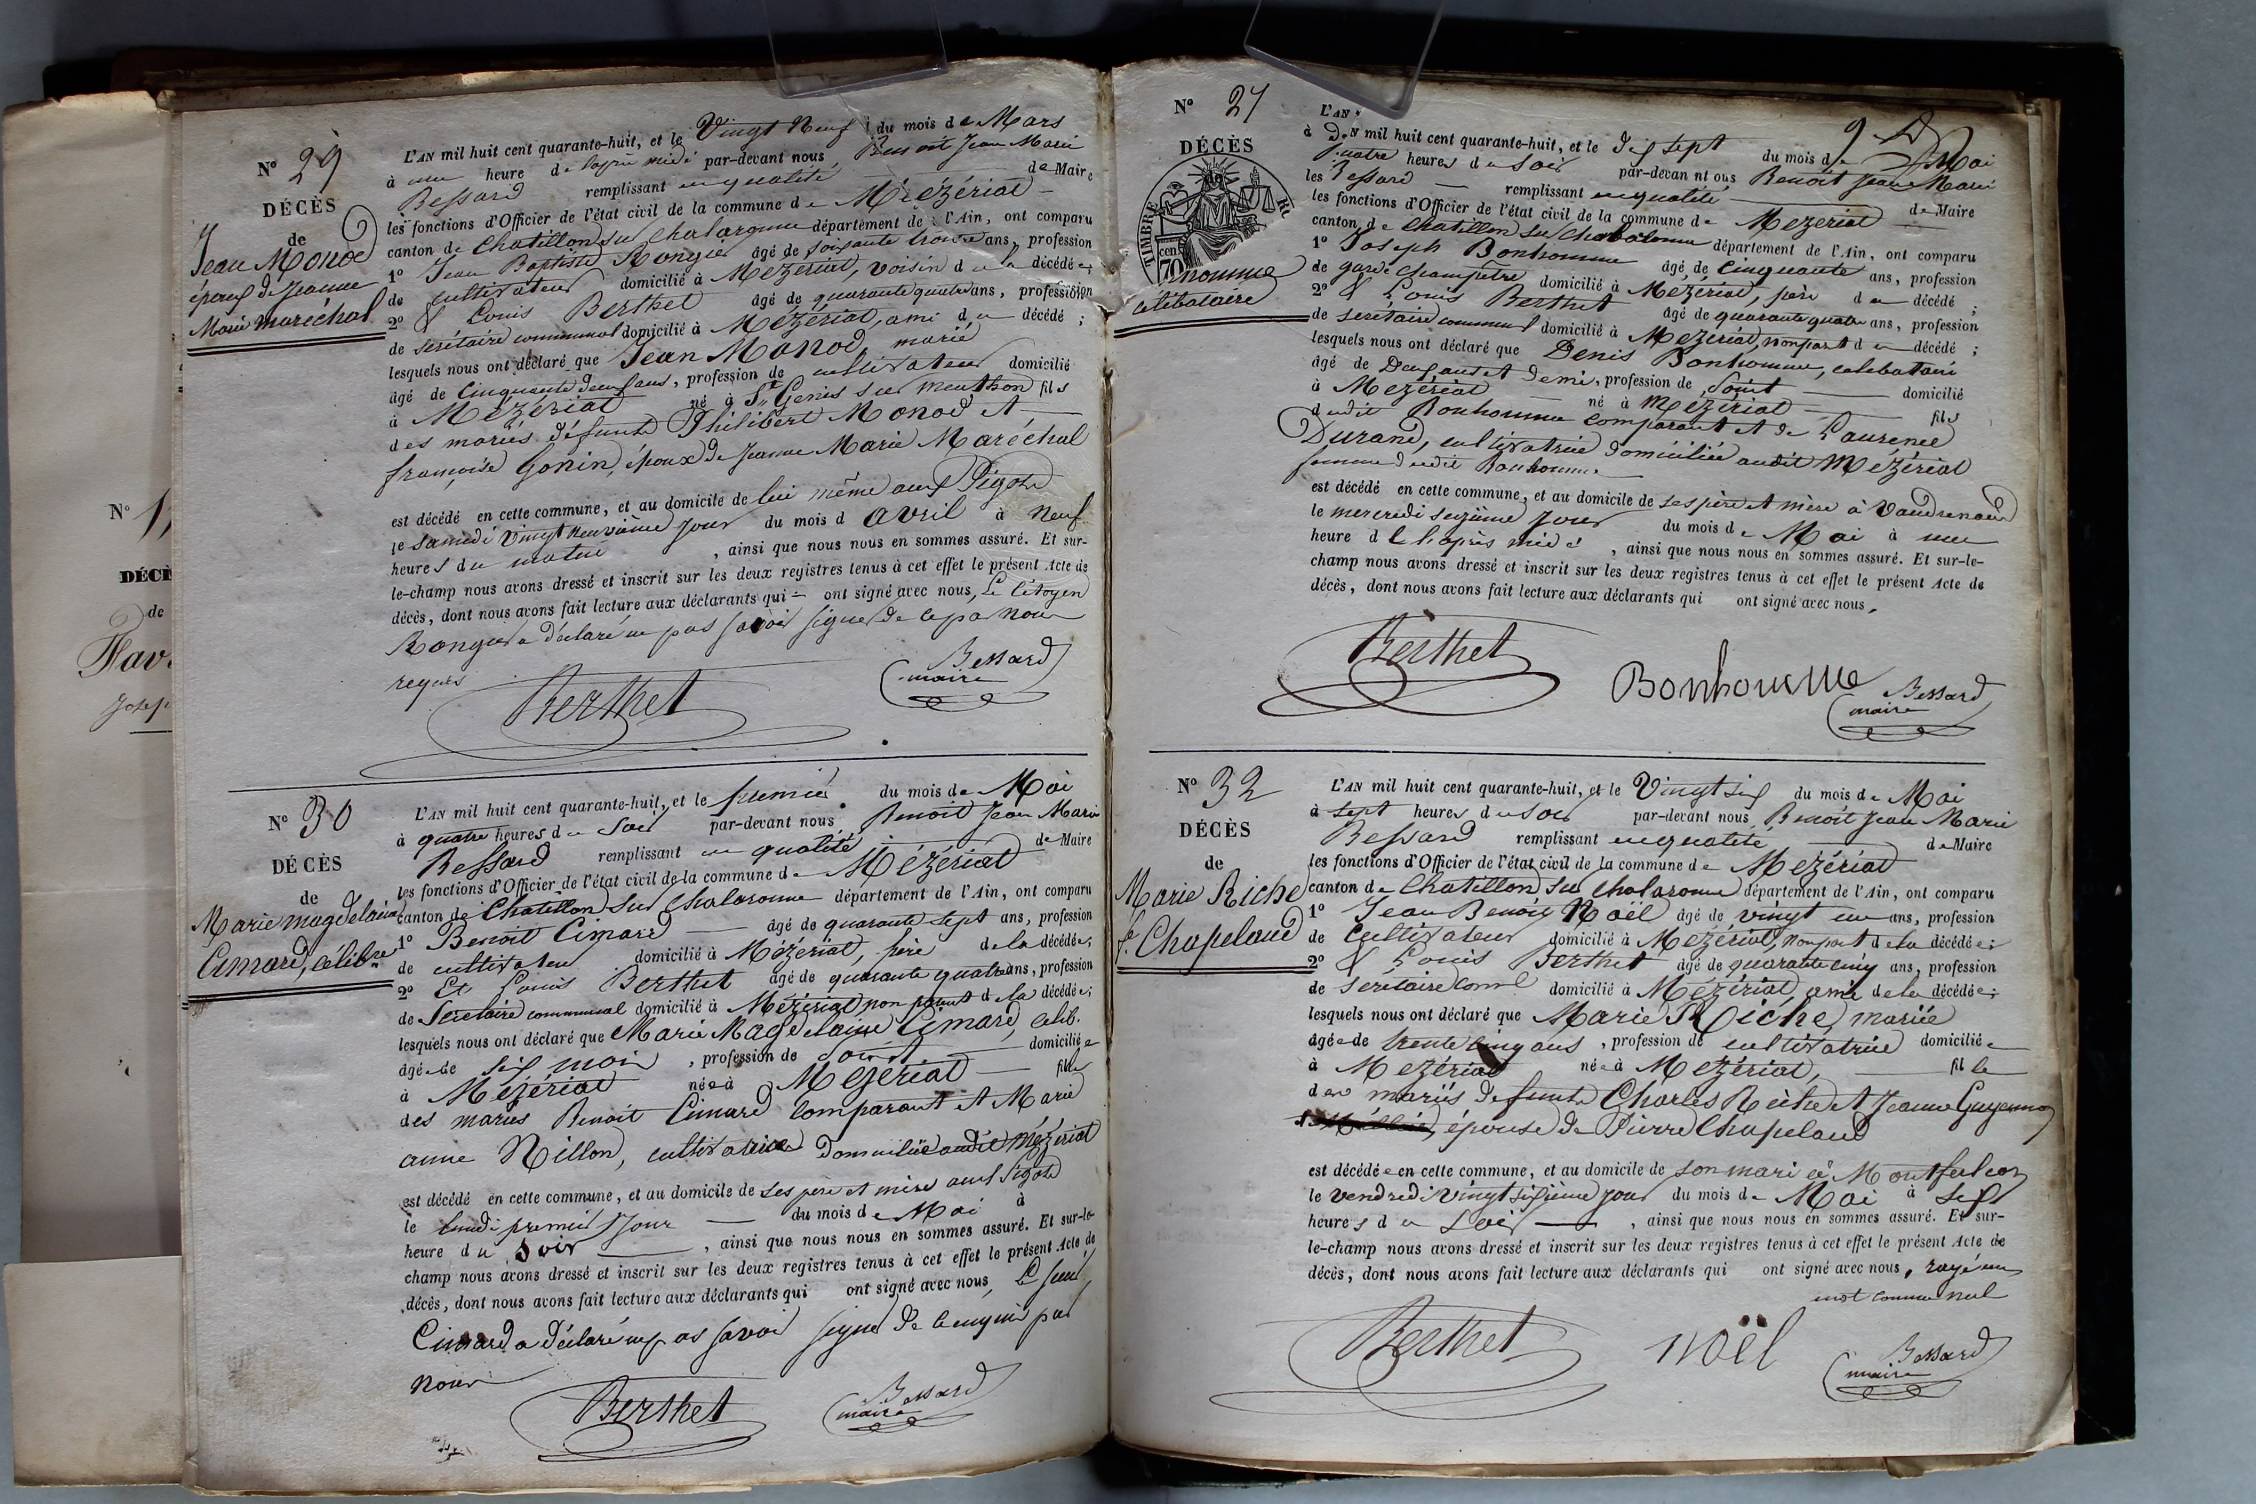 N° 1
DÉCÈ
de
Fav
Josep
N° 29
DÉCÈS
de
Jean Monod
époux de Jeanne
Marie maréchal
L'AN mil huit cent quarante-huit, et le Vingt Neuf du mois de Mars
à une heure de lapre midi par-devant nous Benoit Jean Marie
Bessard remplissant en qualité de Maire
les fonctions d'Officier de l'état civil de la commune de Mézériat
canton de Chatillon sur Chalaronne département de l'Ain, ont comparu
1° Jean Baptiste Rongier âgé de soixante ans, profession
de cultivateur domicilié à Mézériat, voisin d u la décédé e;
2° & Louis Berthet âgé de quarante quatre ans, profession
de secrétaire communal domicilié à Mézériat, ami d u décédé ;
lesquels nous ont déclaré que Jean Monod, marié
âgé de Cinquante deux ans, profession de cultivateur domicilié
à Mézériat né à St Genis sur menthon fils
des mariés défunts Philibert Monod et
françoise Gonin, époux de Jeanne Marie Maréchal
est décédé en cette commune, et au domicile de lui même aux Pigots
le samedi vingt neuvième jour du mois d avril à neuf
heures du matin , ainsi que nous nous en sommes assuré. Et sur-
le-champ nous avons dressé et inscrit sur les deux registres tenus à cet effet le présent Acte de
décès, dont nous avons fait lecture aux déclarants qui ont signé avec nous, Le Citoyen
Rongier a déclaré ne pas savoir signer de ce par nous
requis
Berthet
Bessard
maire
N° 30
DÉCÈS
de
Marie magdelaine
Cimard, célibre
L'AN mil huit cent quarante-huit, et le premier du mois de Mai
à quatre heures du Soir par-devant nous Benoit Jean Marie
Bessard remplissant en qualité de Maire
les fonctions d'Officier de l'état civil de la commune de Mézériat
canton de Chatillon sur Chalaronne département de l'Ain, ont comparu
1° Benoit Cimard âgé de quarante sept ans, profession
de cultivateur domicilié à Mézériat, père de la décédée;
2° Et Louis Berthet âgé de quarante quatre ans, profession
de Secrétaire communal domicilié à Mézériat non parent de la décédée;
lesquels nous ont déclaré que Marie Magdelaine Cimard, célib.
âgée de six mois , profession de Soint domiciliée
à Mézériat née à Mézériat fille
des mariés Benoit Cimard comparant et Marie
anne Nillon, cultivatrice domiciliée audit Mézériat
est décédé en cette commune, et au domicile de ses père et mère aux Pigots
le lundi premier Jour du mois de Mai à
heure du Soir , ainsi que nous nous en sommes assuré. Et sur-le-
champ nous avons dressé et inscrit sur les deux registres tenus à cet effet le présent Acte de
décès, dont nous avons fait lecture aux déclarants qui ont signé avec nous,
Cimard a déclaré ne pas savoir signer de ce enquis par
nous
Berthet
Bessard
maire
N° 27
DÉCÈS
TIMBRE
70
cen
nomme
célibataire
L'AN mil huit cent quarante-huit, et le dix sept du mois de Mai
à quatre heures du soir par-devant nous Benoît Jean Marie
Bessard remplissant en qualité de Maire
les fonctions d'Officier de l'état civil de la commune de Mezeriat
canton de Chatillon sur Chalaronne département de l'Ain, ont comparu
1° Joseph Bonhomme âgé de Cinquante ans, profession
de garde champêtre domicilié à Mézériat, père d u décédé ;
2° & Louis Berthet âgé de quarante quatre ans, profession
de secrétaire communl domicilié à Mezériat, non part d u décédé ;
lesquels nous ont déclaré que Denis Bonhomme, célibataire
âgé de Deux ans et demi, profession de Soint domicilié
à Mezériat né à Mézériat fils
dudit Bonhomme comparant et de Laurence
Durand, cultivatrice domiciliée audit Mézériat
femme dudit Bonhomme
est décédé en cette commune, et au domicile de ses père et mère à Vaudrenoux
le mercredi seizième Jour du mois de Mai à une
heure d l'après midi , ainsi que nous nous en sommes assuré. Et sur-le-
champ nous avons dressé et inscrit sur les deux registres tenus à cet effet le présent Acte de
décès, dont nous avons fait lecture aux déclarants qui ont signé avec nous.
Berthet
Bonhomme
Bessard
maire
N° 32
DÉCÈS
de
Marie Riche
fe Chapeland
L'AN mil huit cent quarante-huit, et le Vingt six du mois de Mai
à sept heures du soir par-devant nous Benoît Jean Marie
Bessard remplissant en qualité de Maire
les fonctions d'Officier de l'état civil de la commune de Mezériat
canton de Chatillon sur Chalaronne département de l'Ain, ont comparu
1° Jean Benoît Noël âgé de vingt un ans, profession
de Cultivateur domicilié à Mezériat, non part de la décédée;
2° & Louis Berthet âgé de quarante cinq ans, profession
de Secrétaire Comnl domicilié à Mézériat ami de la décédée;
lesquels nous ont déclaré que Marie Riche, mariée
âgée de trente cinq ans , profession de cultivatrice domiciliée
à Mezériat née à Mezériat, fille
des mariés défunts Charles Riche et Jeanne Guyennon
épouse de Pierre Chapeland
est décédée en cette commune, et au domicile de son mari à Montfalcon
le vendredi vingt sixième jour du mois de Mai à six
heures du soir , ainsi que nous nous en sommes assuré. Et sur-
le-champ nous avons dressé et inscrit sur les deux registres tenus à cet effet le présent Acte de
décès, dont nous avons fait lecture aux déclarants qui ont signé avec nous, rayé un
mot comme nul
Berthet
noël
Bessard
maire